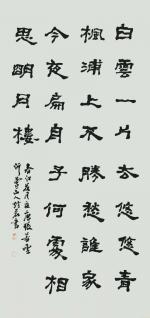 白雲一片去悠悠青
楓浦上不勝愁誰家
今夜扁舟子何處相
思明月樓
春江花月夜唐張若虛